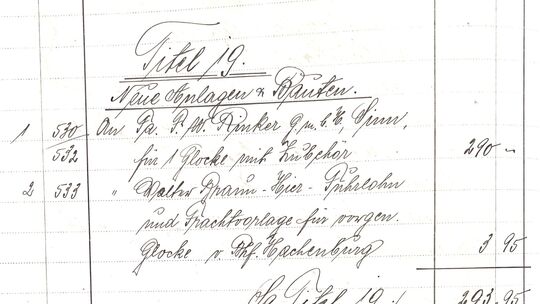 Titel 19.
Neue Anlagen & Bauten.
1 530/532 An Fa. F. W. Rinker G.m.b.H., Sinn,
für 1 Glocke mit Zubehör 290 –
2 533 " Walter Braun - Hier - Fuhrlohn
und Frachtvorlage für vorgen.
Glocke v. Bhf. Hachenburg 3 95
Sa Titel 19 : 293.95